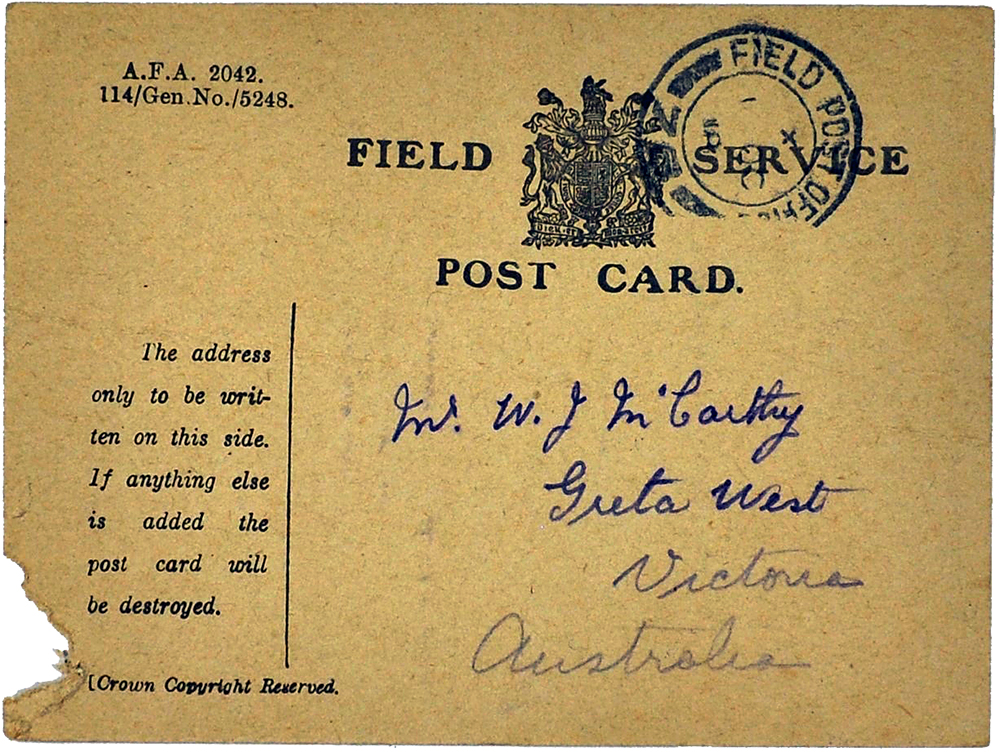 A.F.A. 2042.
114/Gen.No./5248.
FIELD SERVICE
POST CARD.
FIELD POST OFFICE
The address
only to be writ-
ten on this side.
If anything else
is added the
post card will
be destroyed.
[Crown Copyright Reserved.
Mr. W. J McCarthy
Greta West
Victoria
Australia